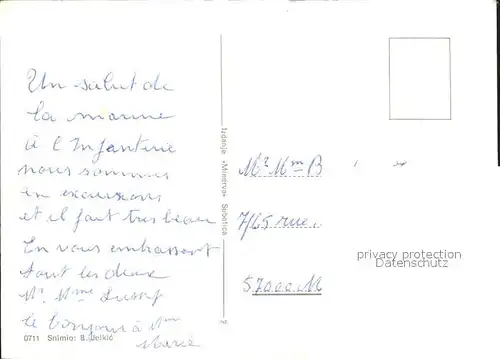 Un salut de
la marine
à l'Infanterie
nous sommes
en excursions
et il fait tres beau
En vous embrassant
tout les deux
Mr. Mme
le bonjour à Mm
Marie
0711 Snimio: B.
Izdanje «Minerva» Subotica
Mr Mm B
7/65 rue.
57000 M
privacy protection
Datenschutz